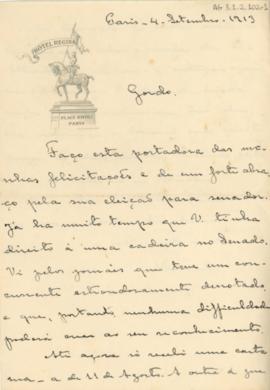 AG 3.1.2.102-1
Paris - 4, Setembro, 1913
HÔTEL REGINA
PLACE RIVOLI
PARIS
Gordo.
Faço esta portadora das mi-
nhas felicitações e de um forte abra-
ço pela sua eleição para senador.
Já ha muito tempo que V. tinha
direito á uma cadeira no Senado.
Vi pelos jornaes que teve um con-
currente estrondosamente derrotado,
e que, portanto, nenhuma difficuldade
poderá haver ao seu reconhecimento.
Até agora só recebi uma carta
sua - a de 11 de Agosto. A outra á que